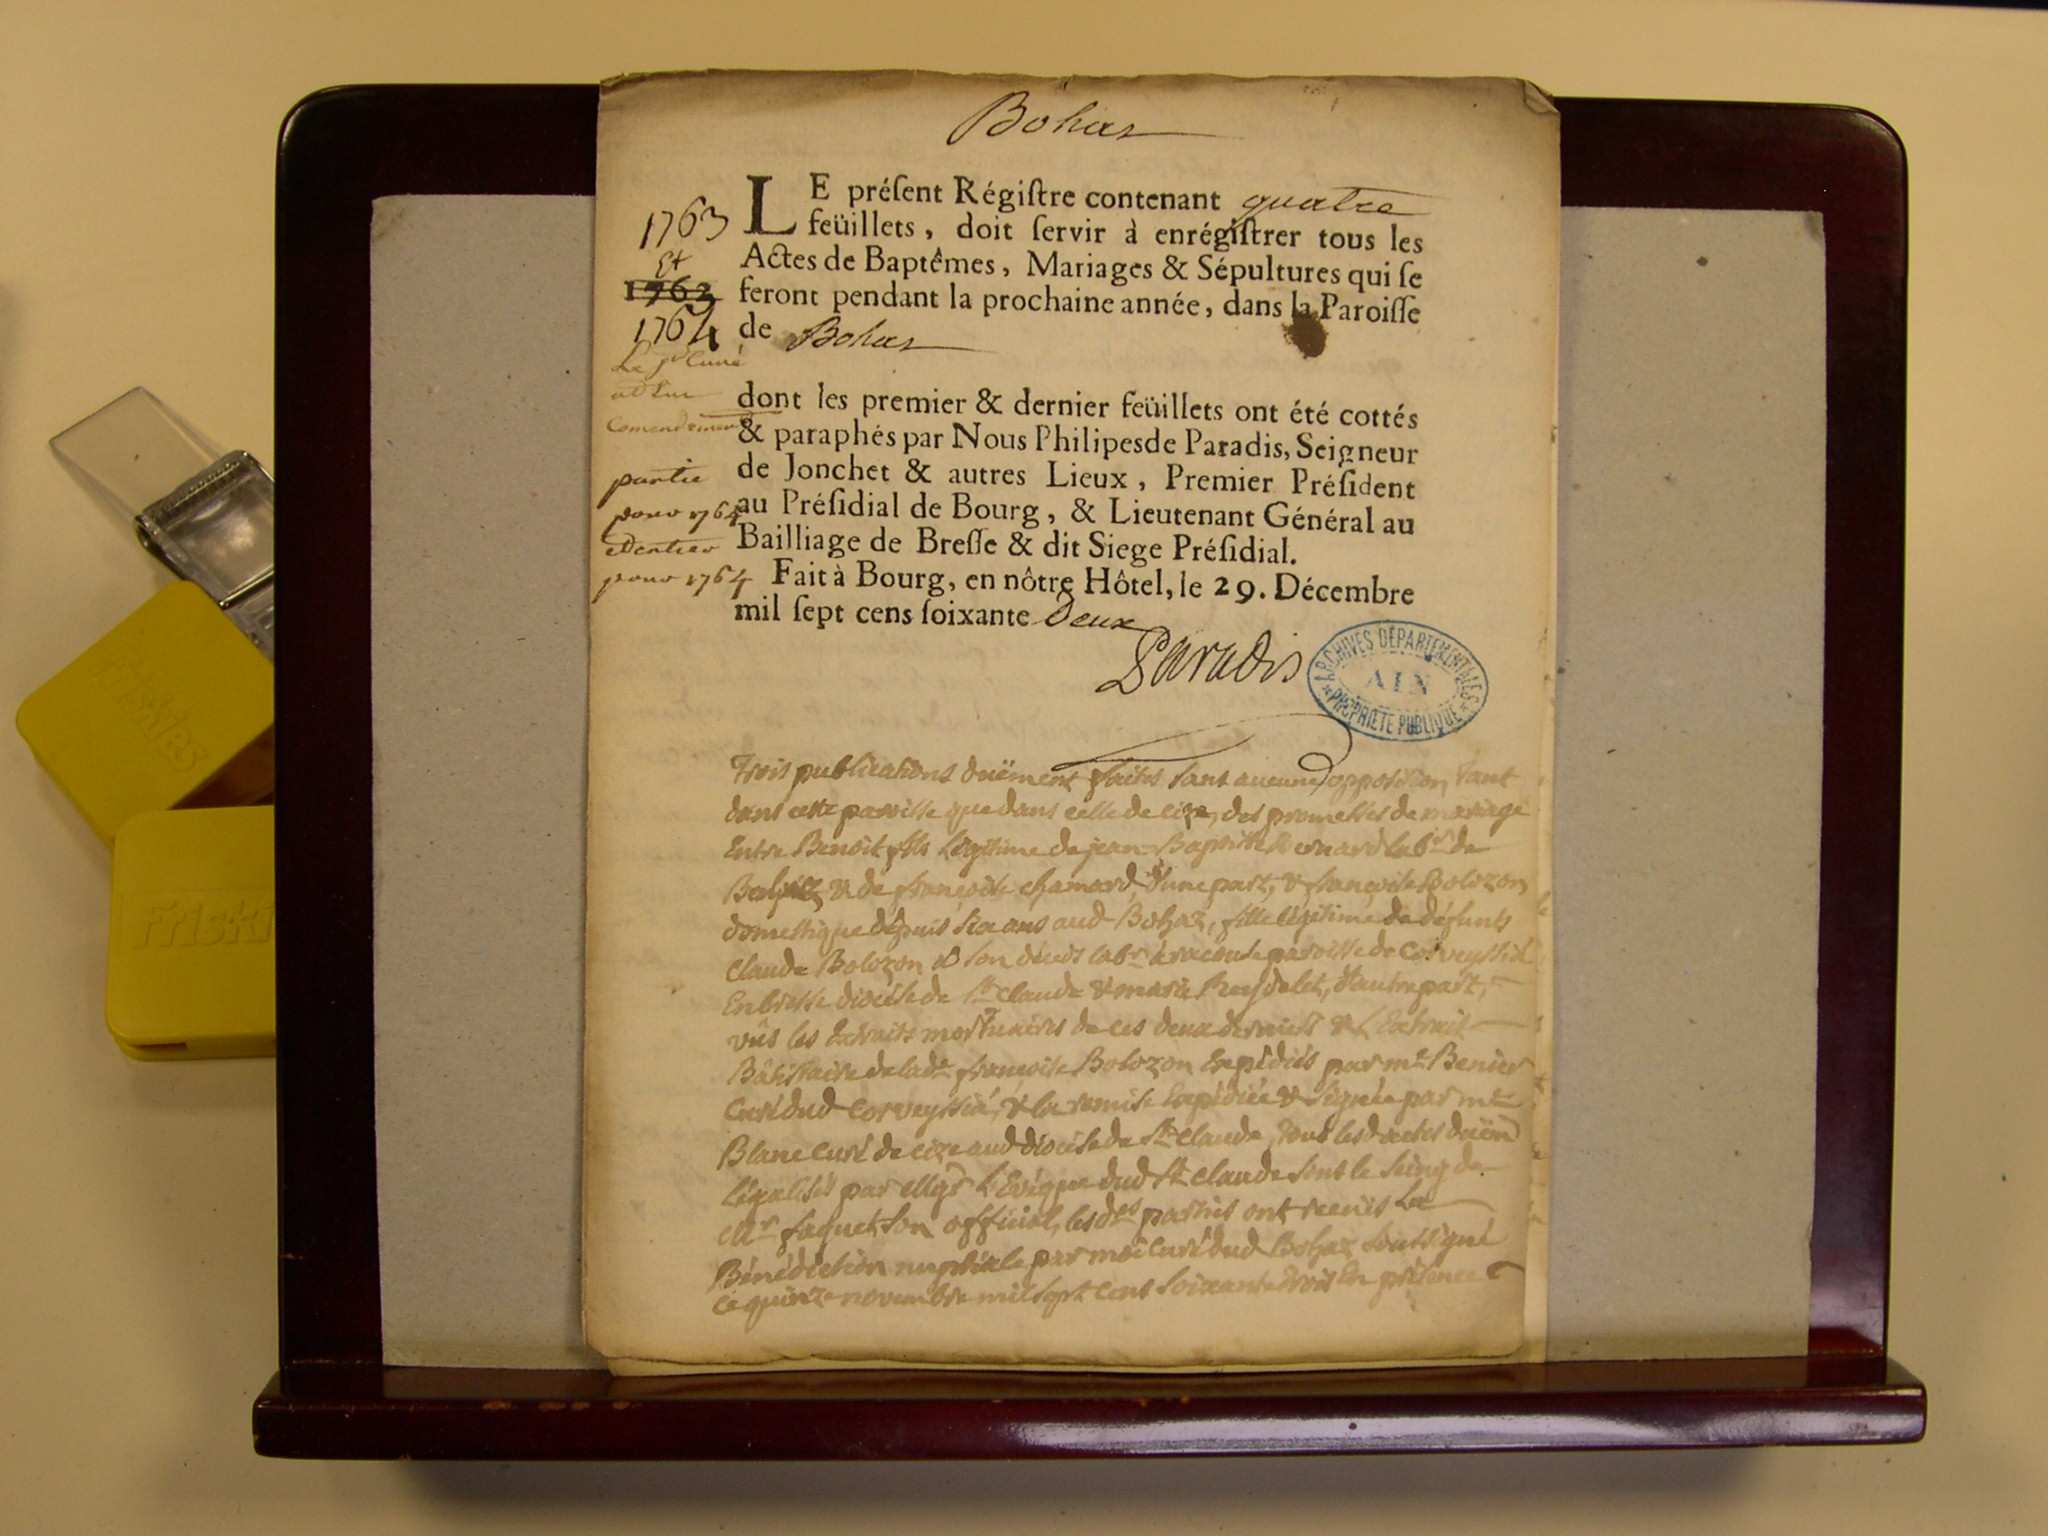 Bohas
LE préſent Régiſtre contenant quatre
feüillets, doit ſervir à enrégiſtrer tous les
Actes de Baptêmes, Mariages & Sépultures qui ſe
feront pendant la prochaine année, dans la Paroiſſe
de Bohas
1763
Et
1762
1764
Le pr Curé
partie
pour 1764
pour 1764
dont les premier & dernier feüillets ont été cottés
& paraphés par Nous Philipes de Paradis, Seigneur
de Jonchet & autres Lieux, Premier Préſident
au Préſidial de Bourg, & Lieutenant Général au
Bailliage de Breſſe & dit Siege Préſidial.
Fait à Bourg, en nôtre Hôtel, le 29. Décembre
mil ſept cens ſoixante deux
Paradis
ARCHIVES DÉPARTEMENTALES
AIN
PROPRIÉTÉ PUBLIQUE
Trois publications duëment faites sans aucune opposition tant
dans cette paroisse que dans celle de cize, des promesses de mariage
Entre Benoît fils légitime de jean Baptiste Bernard labr de
& de françoise chamard, d'une part, & françoise Bolozon
domestique depuis six ans aud Bohaz, fille légitime de défunts
Claude Bolozon à son décés labr à paroisse de Corveyssia
En bresse diocèse de St Claude & marie d'autre part,
vûs les Extraits mortuaires de ces deux derniers & l'Extrait
Bâtistaire de lade françoise Bolozon Expédiés par mre Benier
Curé dud Corveyssia, & la remise Expédiée & signée par mre
Blanc Curé de cize aud diocèse de St Claude, tous lesd actes duëm
légalisés par Mgr L'Evêque dud St Claude sous le seing de
Mr faquet son official, lesdes parties ont reçûs La
Bénédiction nuptiale par moi Curé dud Bohaz soussigné
ce quinze novembre mil sept cens soixante trois En présence